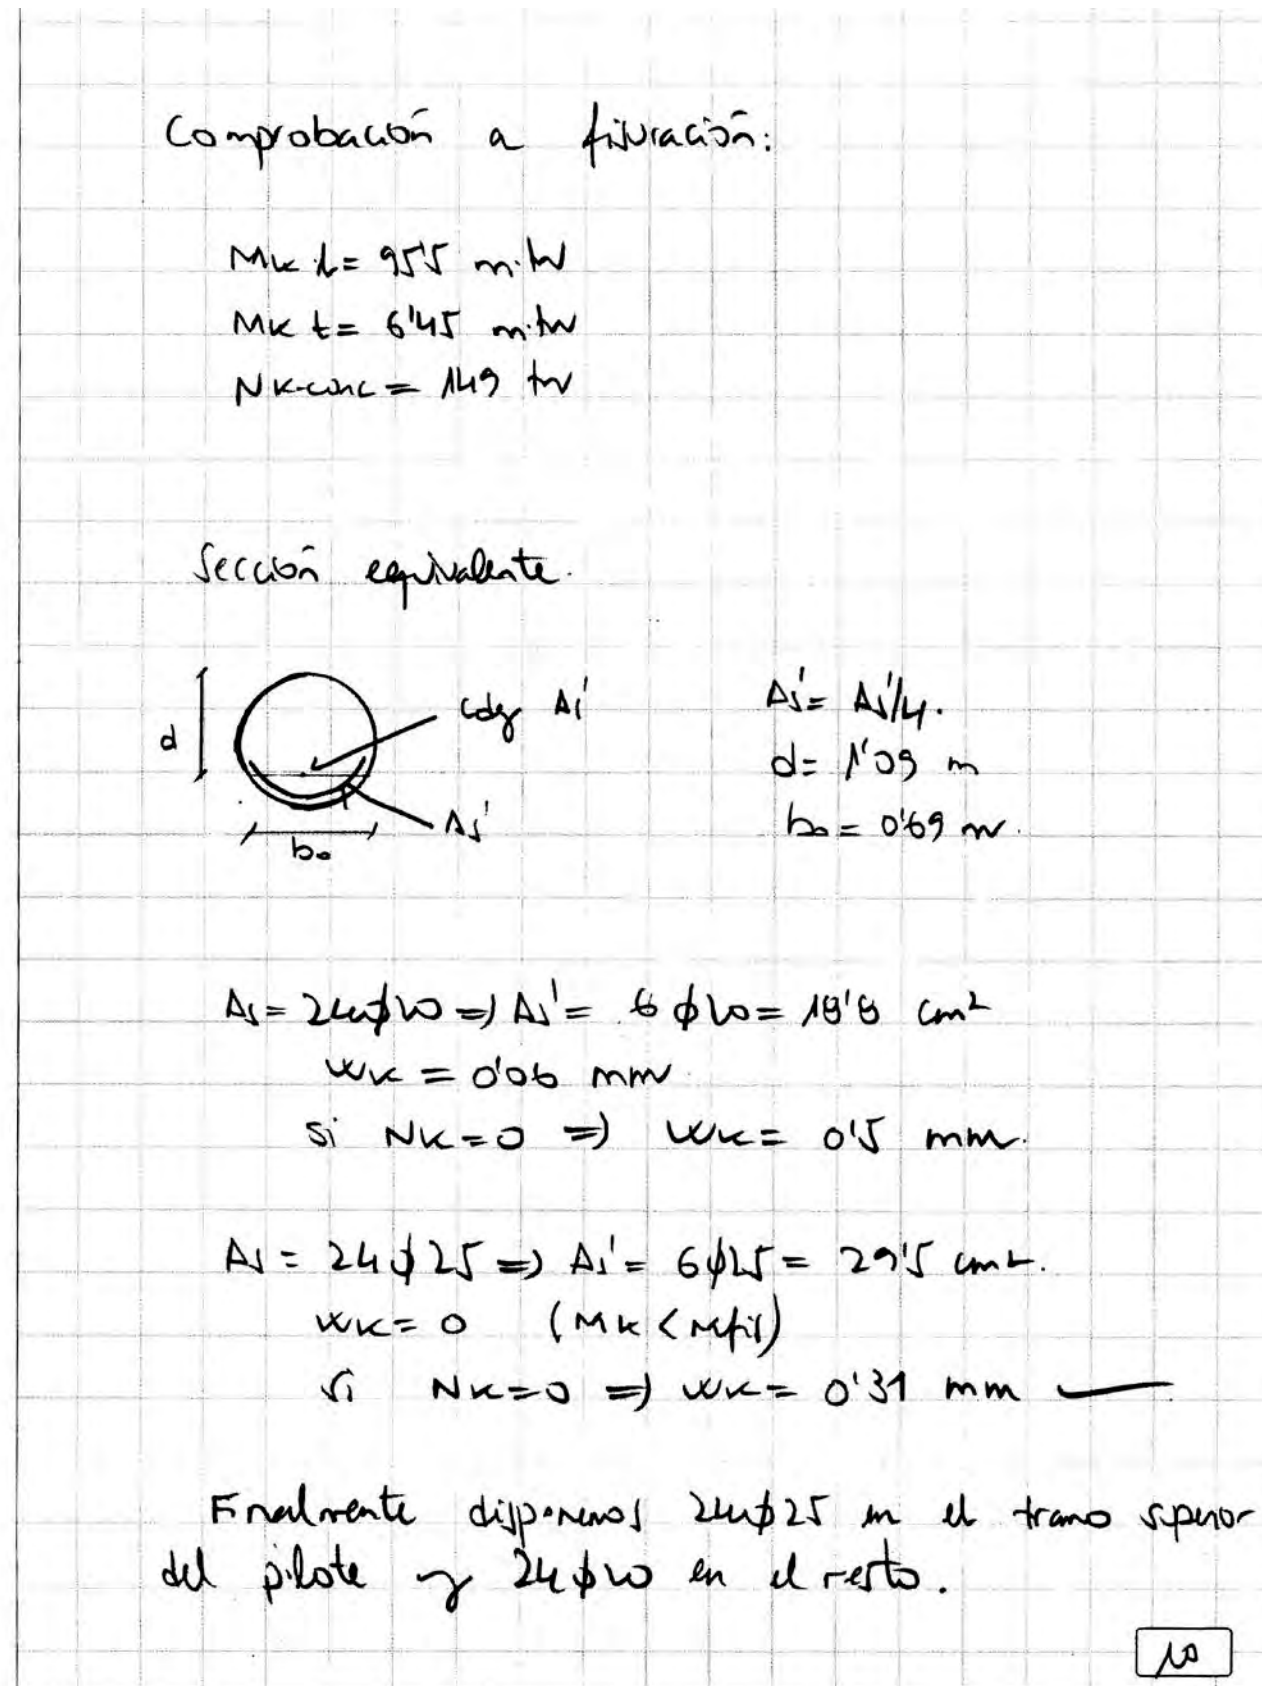 Comprobación a fisuración:
Mk l = 95'5 m·tn
Mk t = 6'45 m·tn
Nk-conc = 149 tn
Sección equivalente.
cdg As'
d
As'
b₀
As' = As/4.
d = 1'09 m
b₀ = 0'69 m.
As = 24ϕ20 ⇒ As' = 6ϕ20 = 18'8 cm²
Wk = 0'06 mm.
si Nk = 0 ⇒ Wk = 0'5 mm.
As = 24ϕ25 ⇒ As' = 6ϕ25 = 29'5 cm².
Wk = 0 (Mk < Mfis)
si Nk = 0 ⇒ Wk = 0'31 mm
Finalmente disponemos 24ϕ25 en el tramo superior
del pilote y 24ϕ20 en el resto.
10